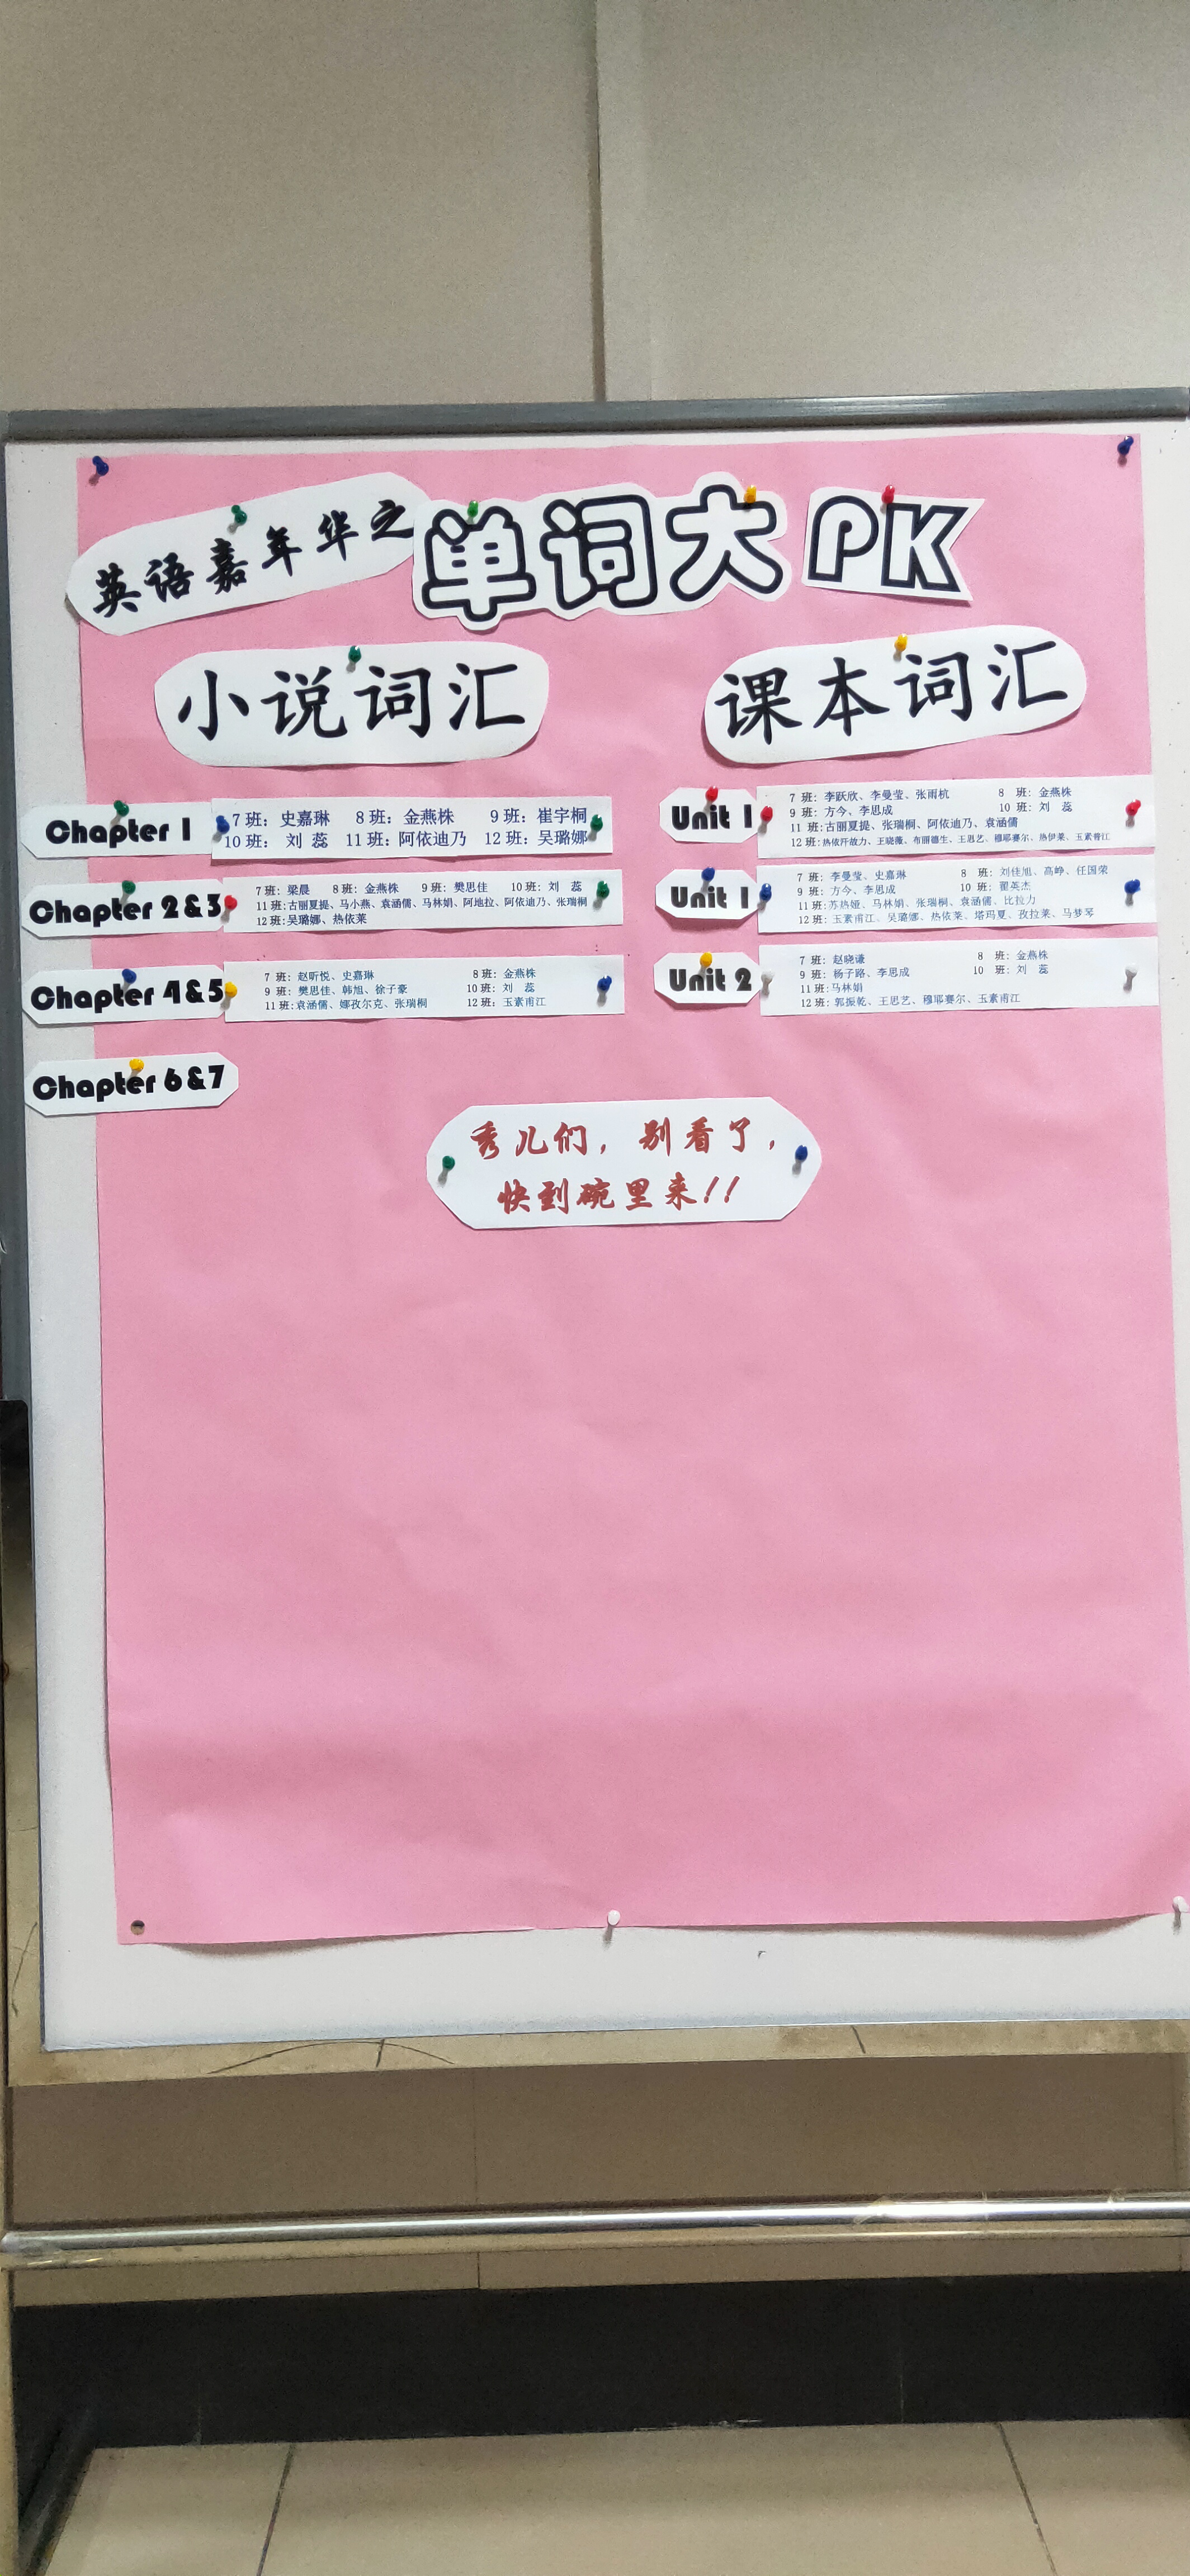 英语嘉年华之单词大PK
小说词汇
Chapter 1
7班：史嘉琳 8班：金燕株 9班：崔宇桐
10班：刘蕊 11班：阿依迪乃 12班：吴璐娜
Chapter 2&3
7班：梁晨 8班：金燕株 9班：樊思佳 10班：刘蕊
11班：古丽夏提、马小燕、袁涵儒、马林娟、阿地拉、阿依迪乃、张瑞桐
12班：吴璐娜、热依莱
Chapter 4&5
7班：赵昕悦、史嘉琳 8班：金燕株
9班：樊思佳、韩旭、徐子豪 10班：刘蕊
11班：袁涵儒、娜孜尔克、张瑞桐 12班：玉素甫江
Chapter 6&7
课本词汇
Unit 1
7班：李跃欣、李曼莹、张雨杭 8班：金燕株
9班：方今、李思成 10班：刘蕊
11班：古丽夏提、张瑞桐、阿依迪乃、袁涵儒
12班：热依汗故力、王晓薇、布丽德生、王思艺、穆耶赛尔、热伊莱、玉素普江
Unit 1
7班：李曼莹、史嘉琳 8班：刘佳旭、高峥、任国荣
9班：方今、李思成 10班：翟英杰
11班：苏热娅、马林娟、张瑞桐、袁涵儒、比拉力
12班：玉素甫江、吴璐娜、热依莱、塔玛夏、孜拉莱、马梦琴
Unit 2
7班：赵晓谦 8班：金燕株
9班：杨子路、李思成 10班：刘蕊
11班：马林娟
12班：郭振乾、王思艺、穆耶赛尔、玉素甫江
秀儿们，别看了，
快到碗里来！！